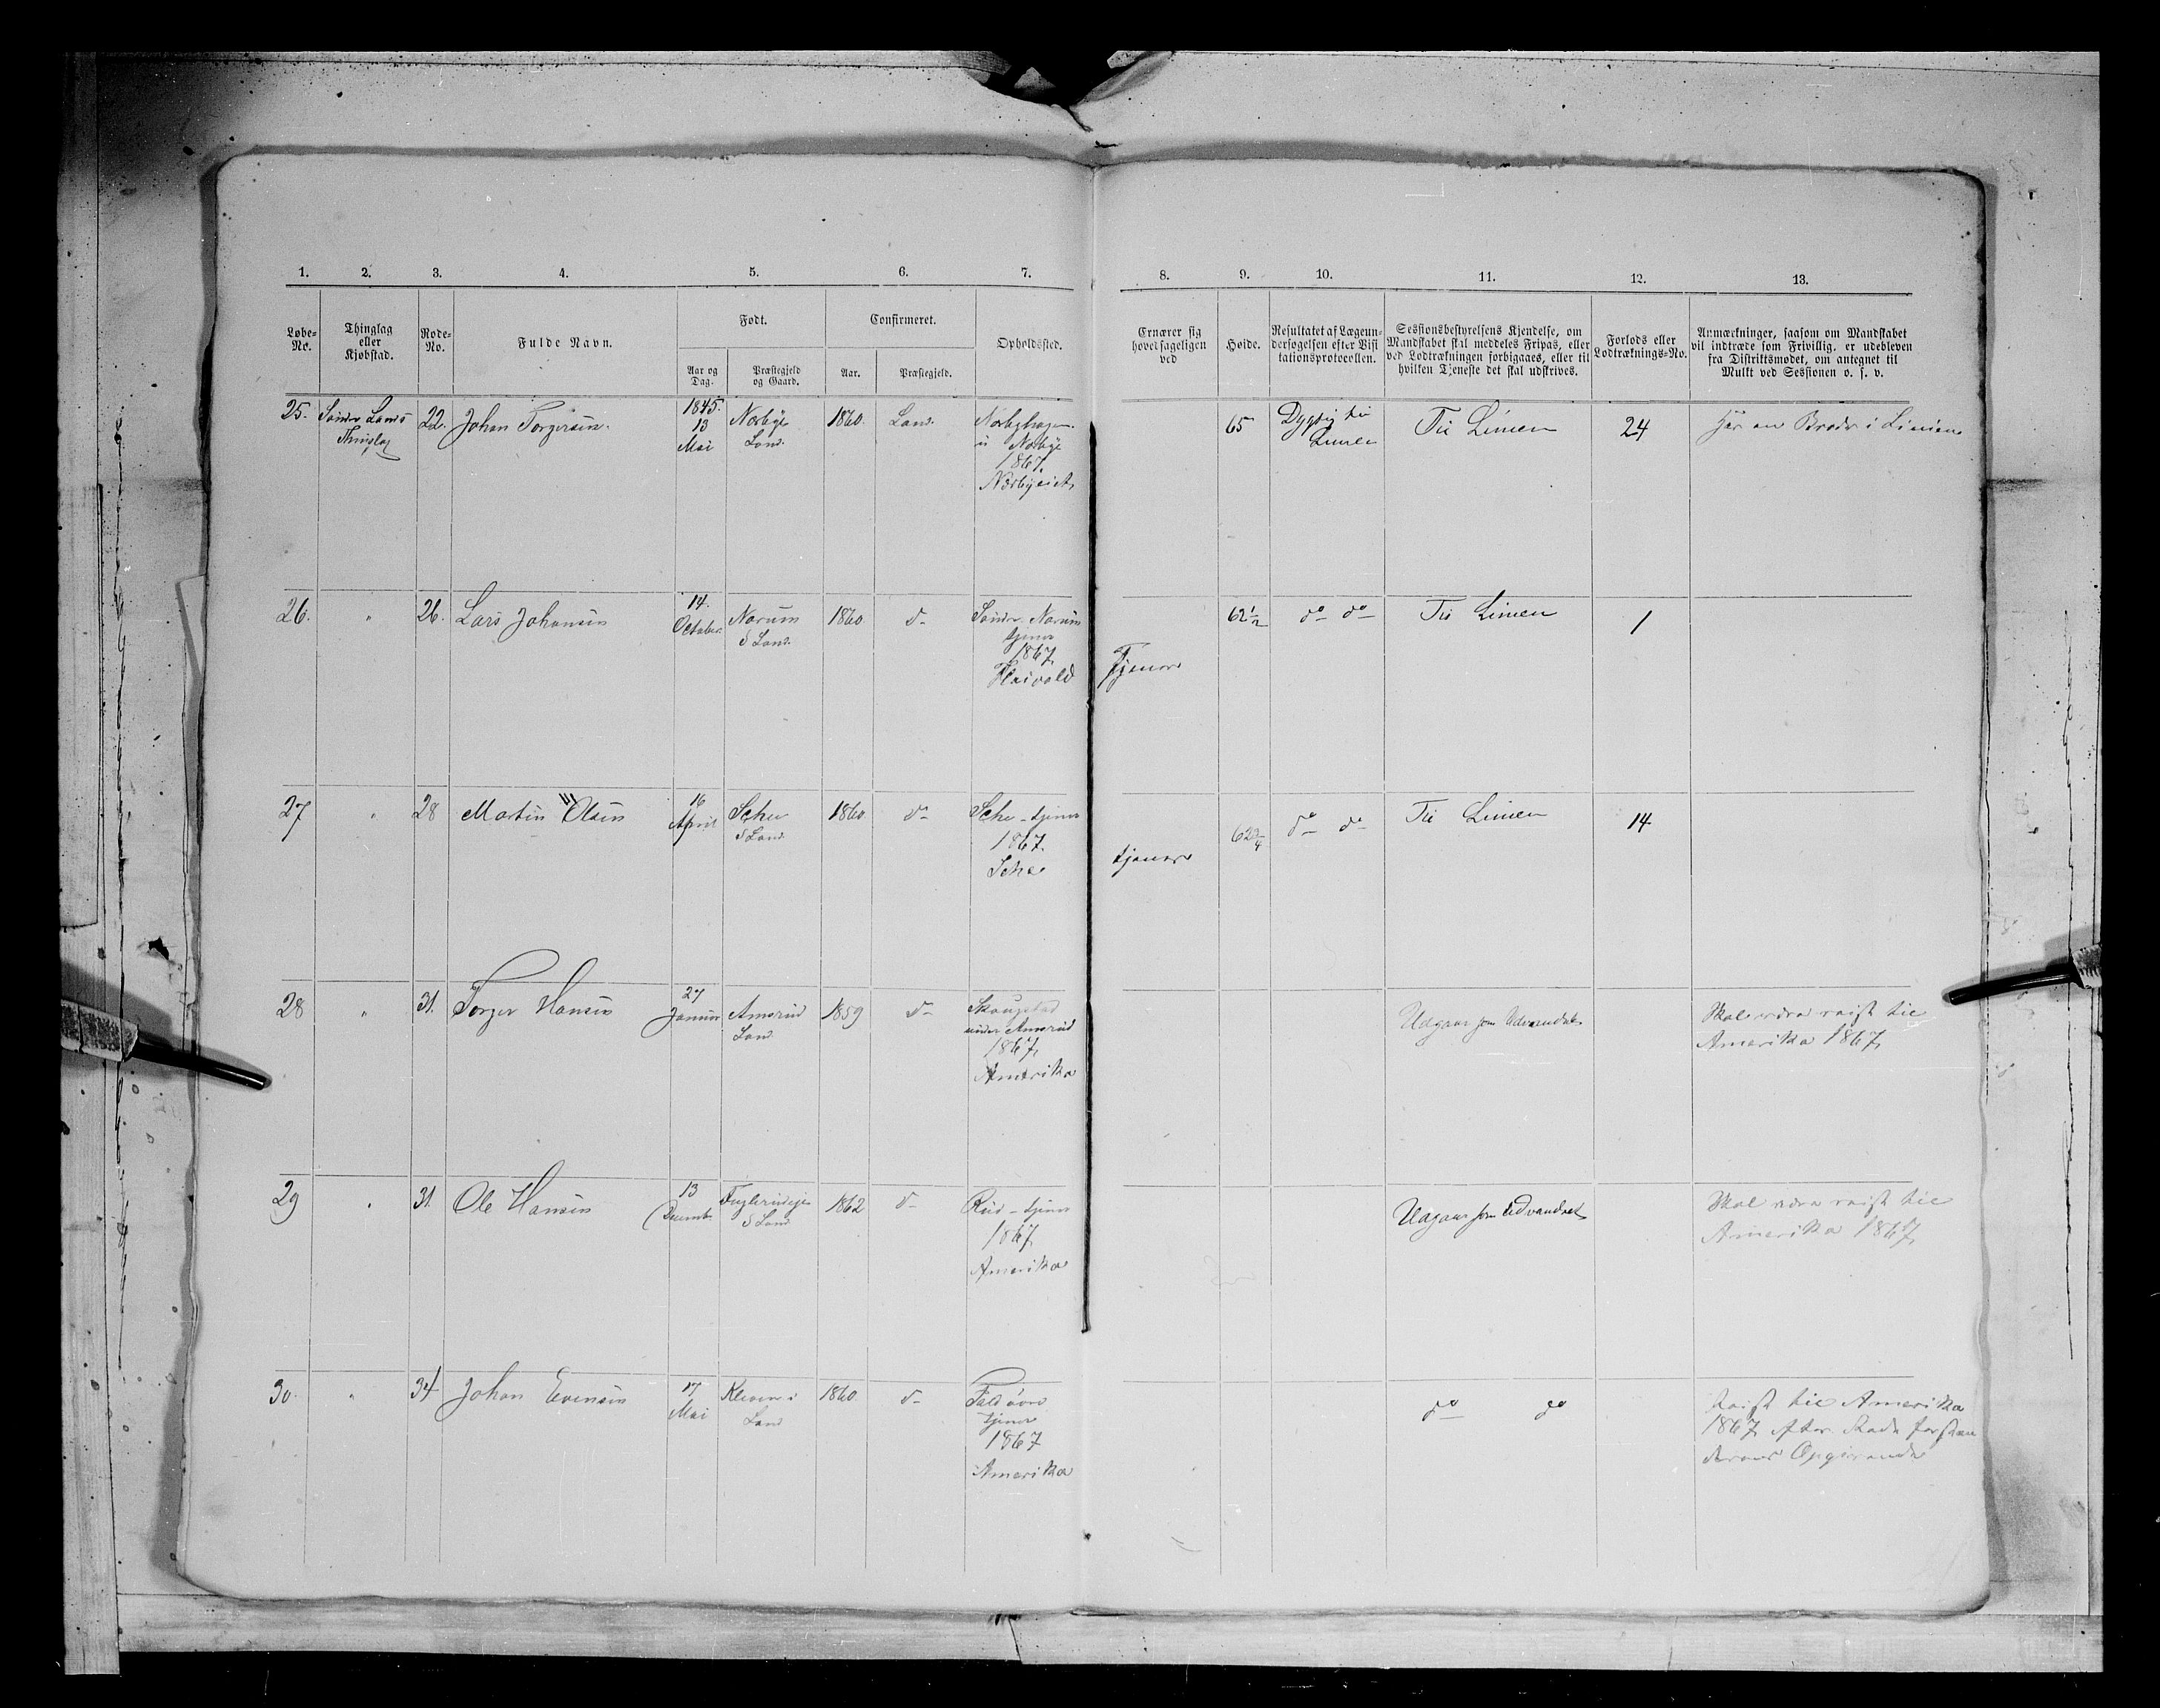 1. 2. 3. 4. 5. 6. 7. 8. 9. 10. 11. 12. 13.
Løbe-No.
Thinglag eller Kjøbstad.
Rode-No.
Fulde Navn.
Født.
Aar og Dag.
Præstegjeld og Gaard.
Confirmeret.
Aar.
Præstegjeld.
Opholdssted.
Ernærer sig hovedsageligen ved
Høide.
Resultatet af Lægeundersøgelsen efter Visitationsprotocollen.
Sessionsbestyrelsens Kjendelse, om Mandskabet skal meddeles Fripas, eller ved Lodtrækningen forbigaaes, eller til hvilken Tjeneste det skal udskrives.
Forlods eller Lodtræknings-No.
Anmærkninger, saasom om Mandskabet vil indtræde som Frivillig, er udebleven fra Distriktsmødet, om antegnet til Mulkt ved Sessionen o. s. v.
25. Søndre Lands Thinglag 22. Johan Torgersen. 1845. 13 Mai Nørbye Land. 1860. Land. Nørbyhagen u Nørbye 1867. Nørbyeiet 65 Dygtig til Linien Til Linien 24 Har en Broder i Linien
26. " 26. Lars Johansen 14. October Narum S Land. 1860 do Søndre Narum tjener 1867 Tjener 62½ do do Til Linien 1
27 " 28 Martin Olsen 16 April Sche S Land 1860 do Sche - tjener 1867. Sche tjener 62¾ do do Til Linien 14
28 " 31. Torger Hansen 27 Januar Amsrud Land 1859 do Skougstad under Amsrud 1867. Amerika Udgaar som Udvandret Skal være reist til Amerika 1867.
29 " 31. Ole Hansen 13 Decemb. S Land 1862 do Rud - tjener 1867. Amerika Udgaar som Udvandret Skal være reist til Amerika 1867.
30. " 34 Johan Evensen 17 Mai Land 1860 do tjener 1867 Amerika do do Reist til Amerika 1867 efter Rodeforstanderens Opgivende